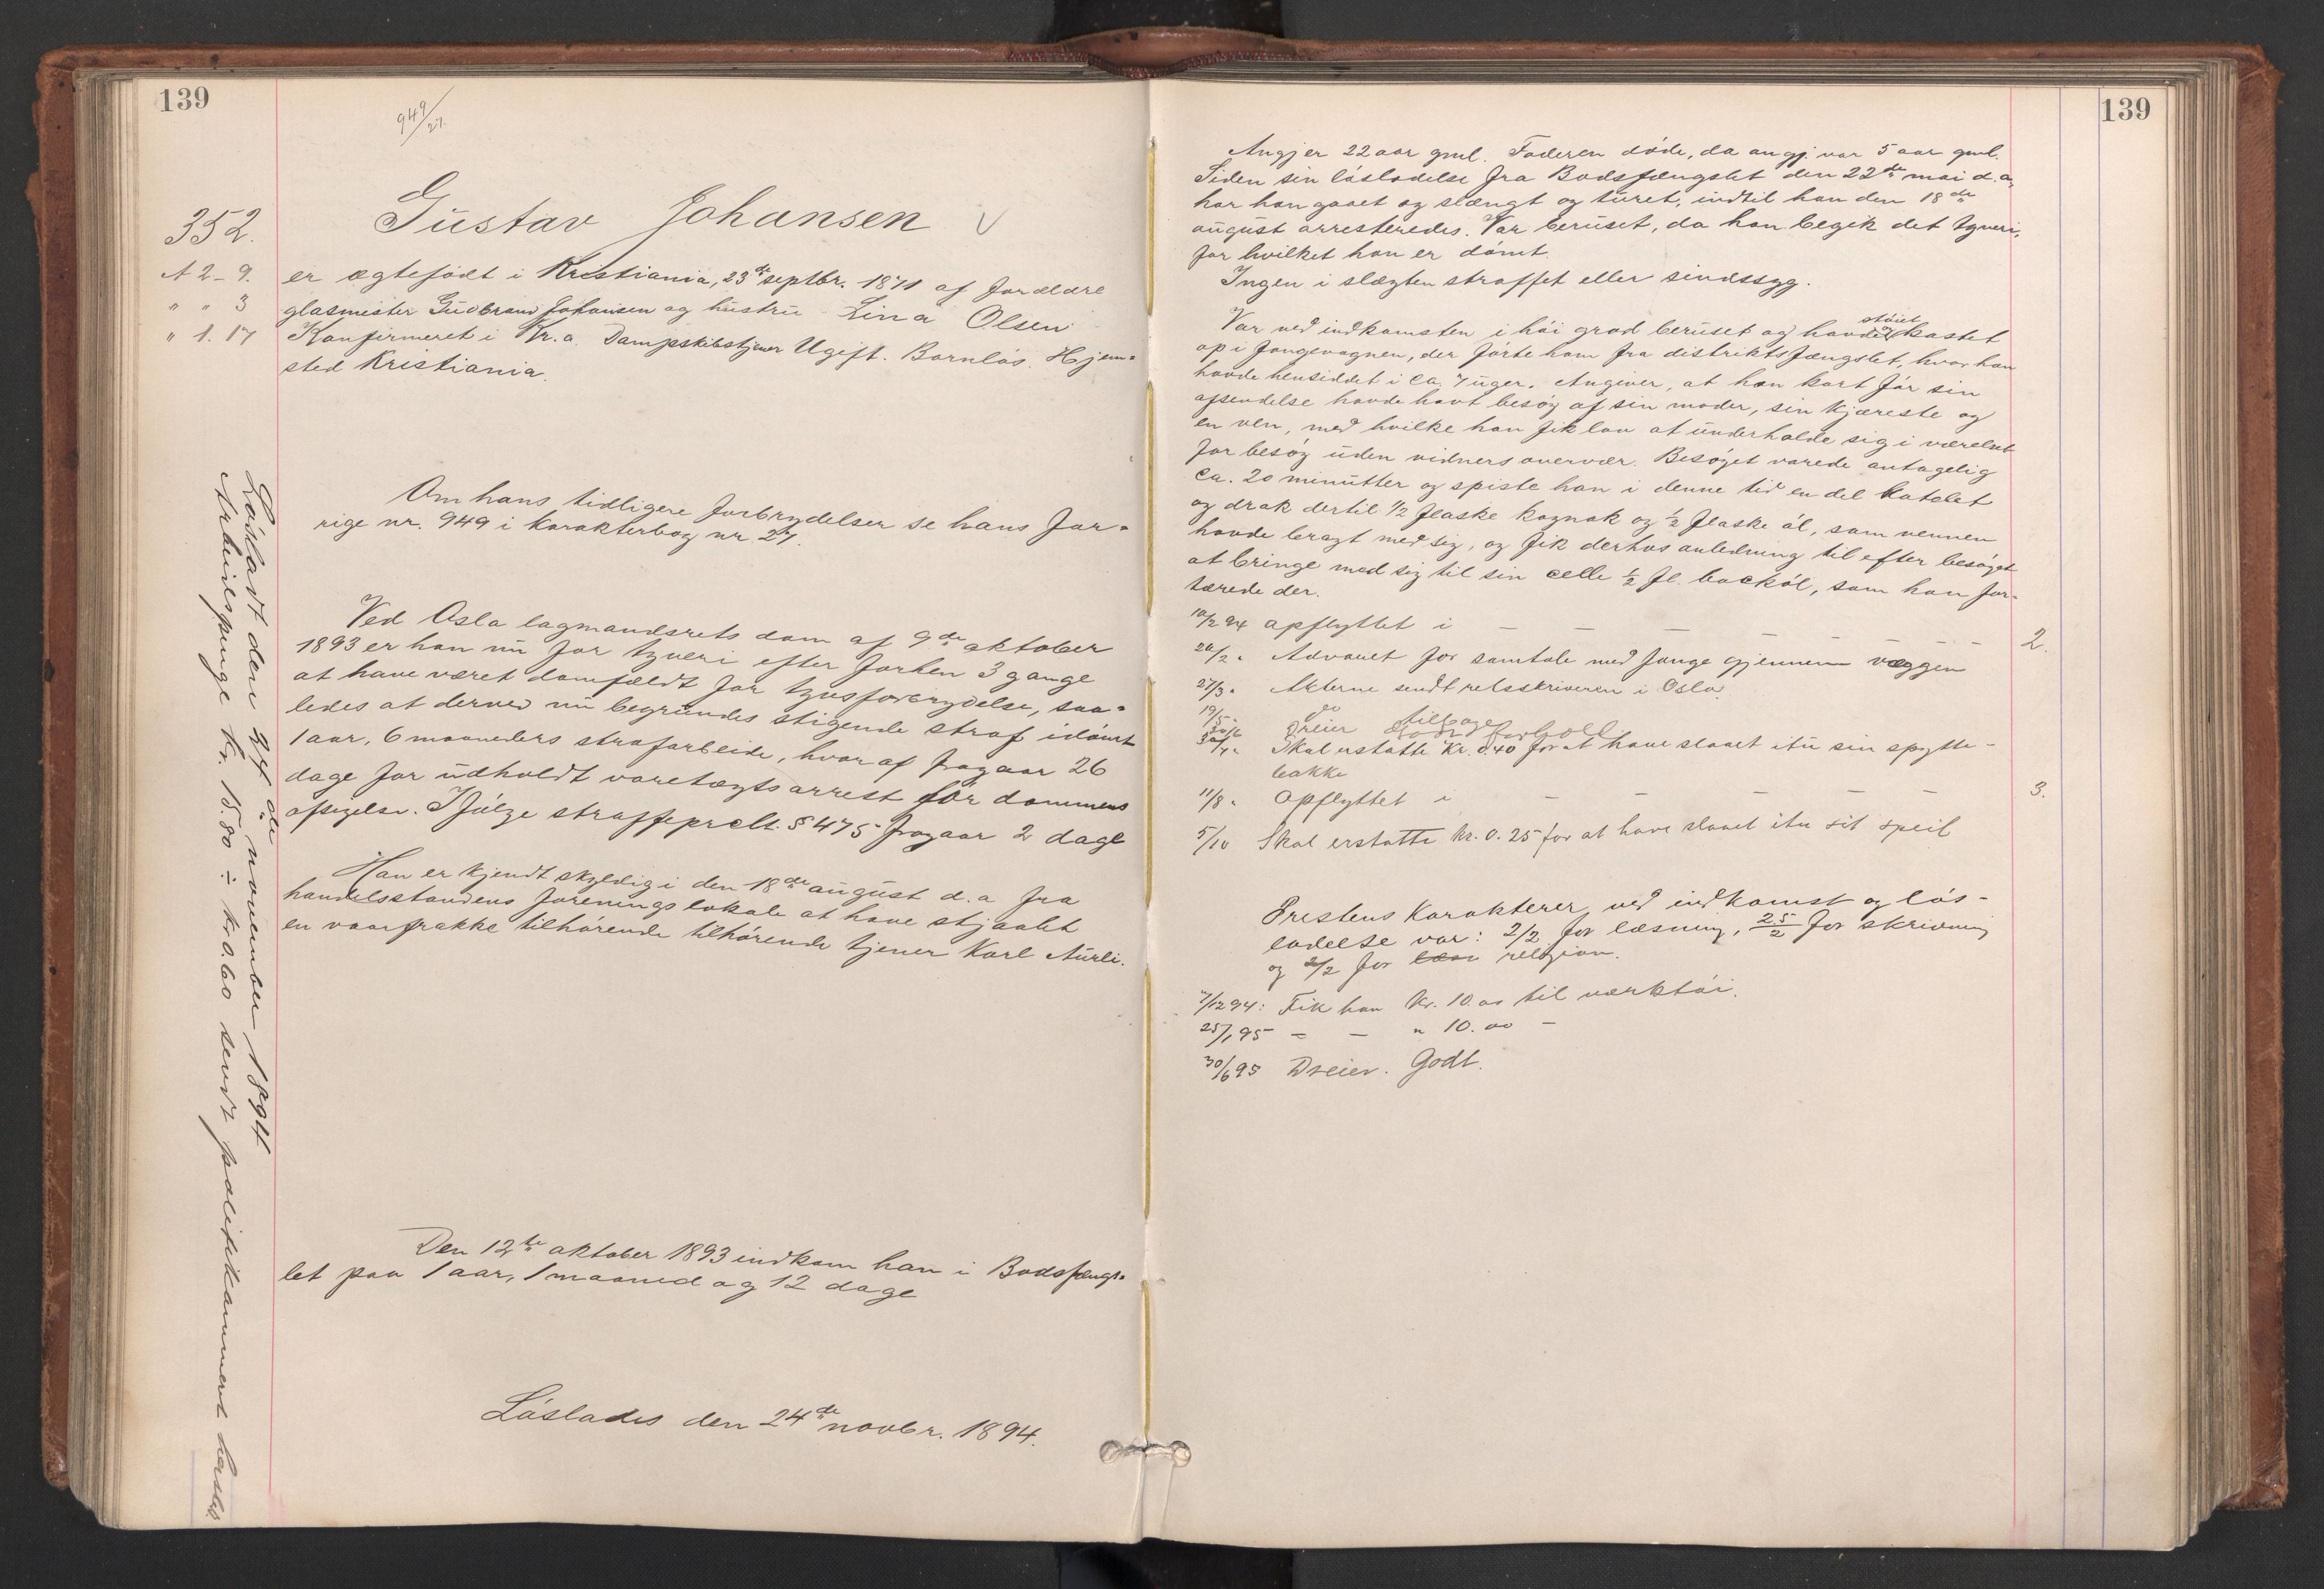 139
949/27.
352.
Gustav Johansen
A 2-9.
" " 3
" 1. 17
er ægtefødt i Kristiania, 23de septbr. 1871 af forældre
glasmester Gudbrand Johansen og hustru Lina Olsen
Konfirmeret i Kr.a. Dampskibstjener Ugift. Barnløs. Hjem-
sted Kristiania.
Om hans tidligere forbrydelser se hans for-
rige nr. 949 i karakterbog nr. 27.
Ved Oslo lagmandsrets dom af 9de oktober
1893 er han nu for tyveri efter forhen 3 gange
at have været domfældt for tyvsforbrydelse, saa-
ledes at derved nu begrundes stigende straf idømt
1 aar, 6 maaneders strafarbeide, hvoraf fragaar 26
dage for udholdt varetægtsarrest før dommens
afsigelse. Ifølge straffeprclt. § 475 fragaar 2 dage
Han er kjendt skyldig i den 18de august d.a fra
handelsstandens forenings lokale at have stjaalet
en vaarfrakke tilhørende tilhørende tjener Karl Aurli.
Den 12te oktober 1893 indkom han i Bodsfængs-
let paa 1 aar, 1 maaned og 12 dage
Løslades den 24de novbr. 1894.
Løsladt den 24de november 1894
Arbeidspenge kr. 15.80 ÷ kr. 0.60 sendt politikammeret hersteds
139
Angj er 22 aar gml. Faderen døde, da angj. var 5 aar gml.
Siden sin løsladelse fra Bodsfængslet den 22de mai d.a,
har han gaaet og slængt og turet, indtil han den 18de
august arresteredes. Var beruset, da han begik det tyveri,
for hvilket han er dømt.
Ingen i slægten straffet eller sindssyg.
Var ved indkomsten i høi grad beruset og havde støiet og kastet
op i fangevognen, der førte ham fra distriktsfængslet, hvor han
havde hensiddet i ca. 7 uger. Angiver, at han kort før sin
afsendelse havde havt besøg af sin moder, sin kjæreste og
en ven, med hvilke han fik lov at underholde sig i værelset
for besøg uden vidners overvær. Besøget varede antagelig
ca. 20 minutter og spiste han i denne tid en del kotelet
og drak dertil 1/2 flaske kognak og 1/2 flaske øl, som vennen
havde bragt med sig, og fik derhos anledning til efter besøget
at bringe med sig til sin celle 1/2 fl. bockøl, som han for-
tærede der.
10/2 94 opflyttet i – – – – – – 2.
20/2 " Advaret for samtale med fange gjennem væggen
27/3 " Akterne sendt retsskriveren i Oslo.
19/5 " do tilbage
30/6 Dreier Godt forhold
30/7 " Skal erstatte kr. 0.40 for at have slaaet itu sin spytte-
bakke
11/8 " Opflyttet i – – – – – 3.
5/10 Skal erstatte kr. 0.25 for at have slaaet itu sit speil
Prestens karakterer ved indkomst og løs-
ladelse var: 2/2 for læsning, 2.5/2 for skrivning
og 2/2 for religion.
7/12 94: Fik han kr. 10.00 til værktøi.
25/1 95 – – " 10.00 –
30/6 95 Dreier. Godt.